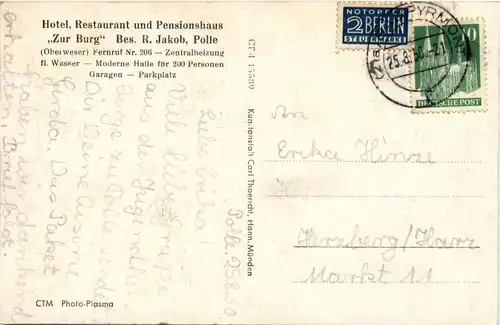 Hotel, Restaurant und Pensionshaus
„Zur Burg" Bes. R. Jakob, Polle
(Oberweser) Fernruf Nr. 206 — Zentralheizung
fl. Wasser — Moderne Halle für 200 Personen
Garagen — Parkplatz
CTM Photo-Plasma
CT 4 15589
Kunstanstalt Carl Thoericht, Hann. Münden
NOTOPFER
2 BERLIN
STEUERMARKE
PYRMONT
25.8.50.-21
10
DEUTSCHE POST
Polle, 25.8.50
Liebe Erika!
Viele liebe Grüße
aus der Jugendher-
berge zu Polle sendet
Dir Deine Cusine
Gerda. Das Paket
haben wir dankend
erhalten, Brief folgt.
An
Erika Hinze
Herzberg/Harz
Markt 11